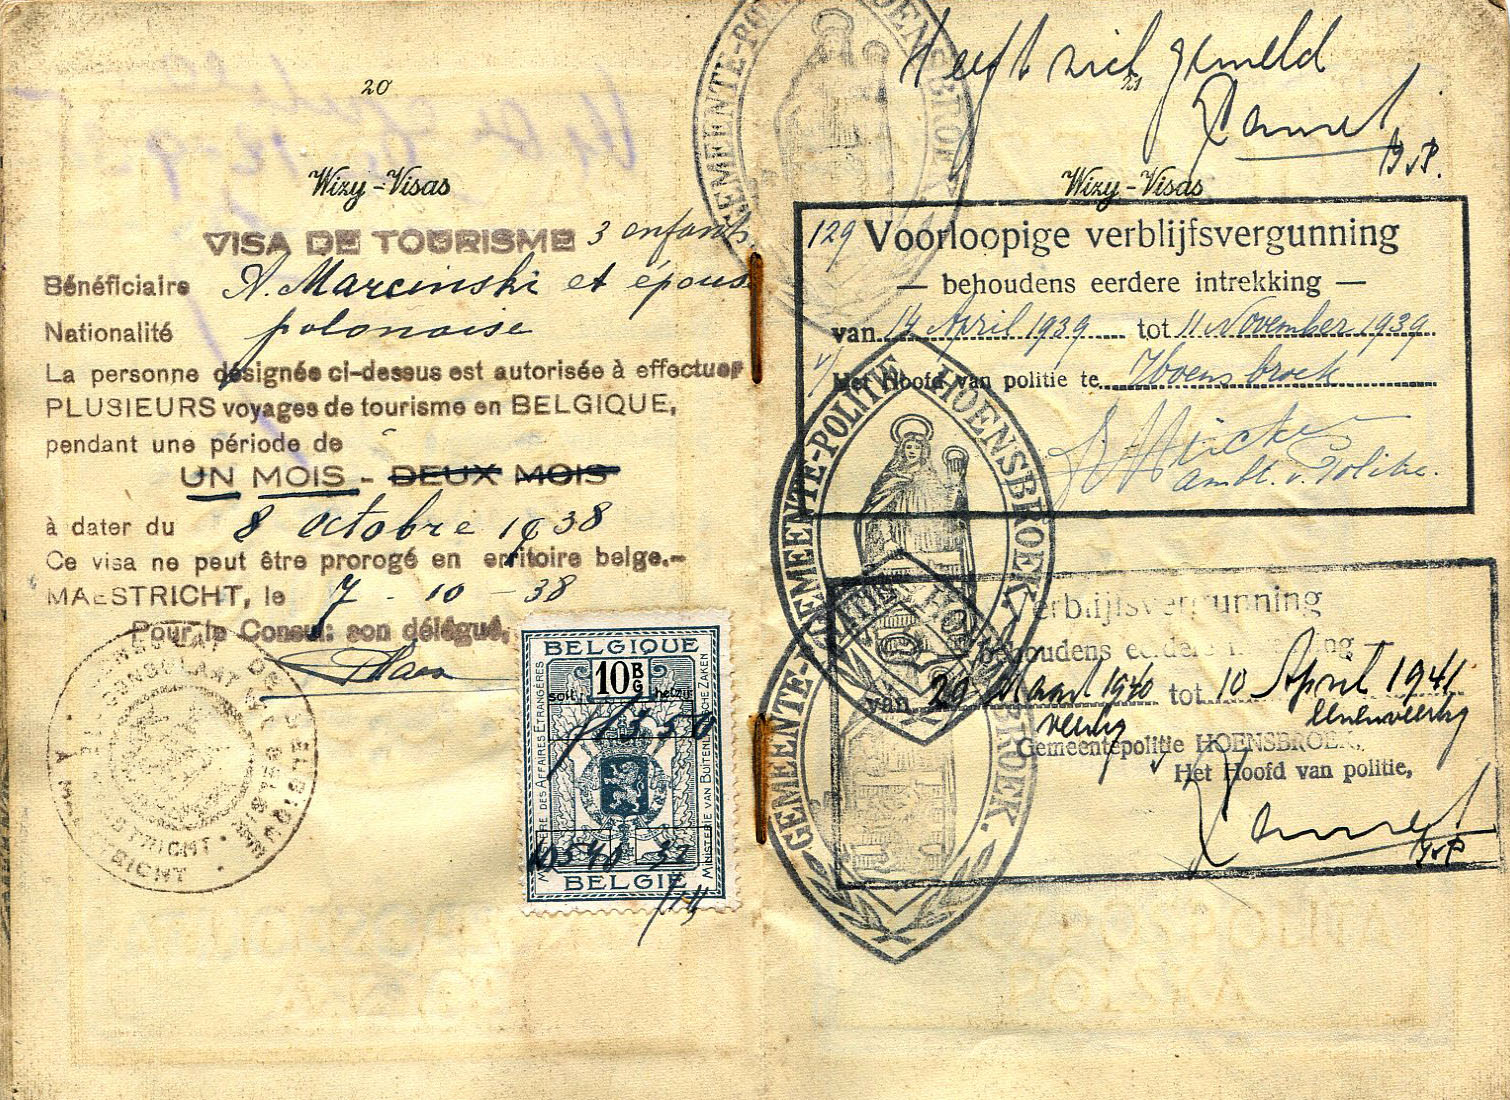 20
Wizy - Visas
VISA DE TOURISME 3 enfants
Bénéficiaire A. Marcinski et épouse
Nationalité polonaise
La personne désignée ci-dessus est autorisée à effectuer
PLUSIEURS voyages de tourisme en BELGIQUE,
pendant une période de
UN MOIS - DEUX MOIS
à dater du 8 octobre 1938
Ce visa ne peut être prorogé en erritoire belge.-
MAESTRICHT, le 7 - 10 - 38
Pour le Consul: son délégué,
BELGIQUE
10 B G
soit: hetzij
MINISTÈRE DES AFFAIRES ETRANGÈRES
MINISTERIE VAN BUITENLANDSCHE ZAKEN
BELGIË
Heeft zich gemeld
21
Wizy - Visas
GEMEENTE-POLITIE HOENSBROEK.
129 Voorloopige verblijfsvergunning
— behoudens eerdere intrekking —
van 14 April 1939 tot 11 November 1939
Het Hoofd van politie te Hoensbroek
Ambt. v. Politie.
GEMEENTE-POLITIE HOENSBROEK.
Verblijfsvergunning
behoudens eerdere
van 20 Maart 1940 tot 10 April 1941
veertig eenenveertig
Gemeentepolitie HOENSBROEK,
Het Hoofd van politie,
GEMEENTE-POLITIE HOENSBROEK.